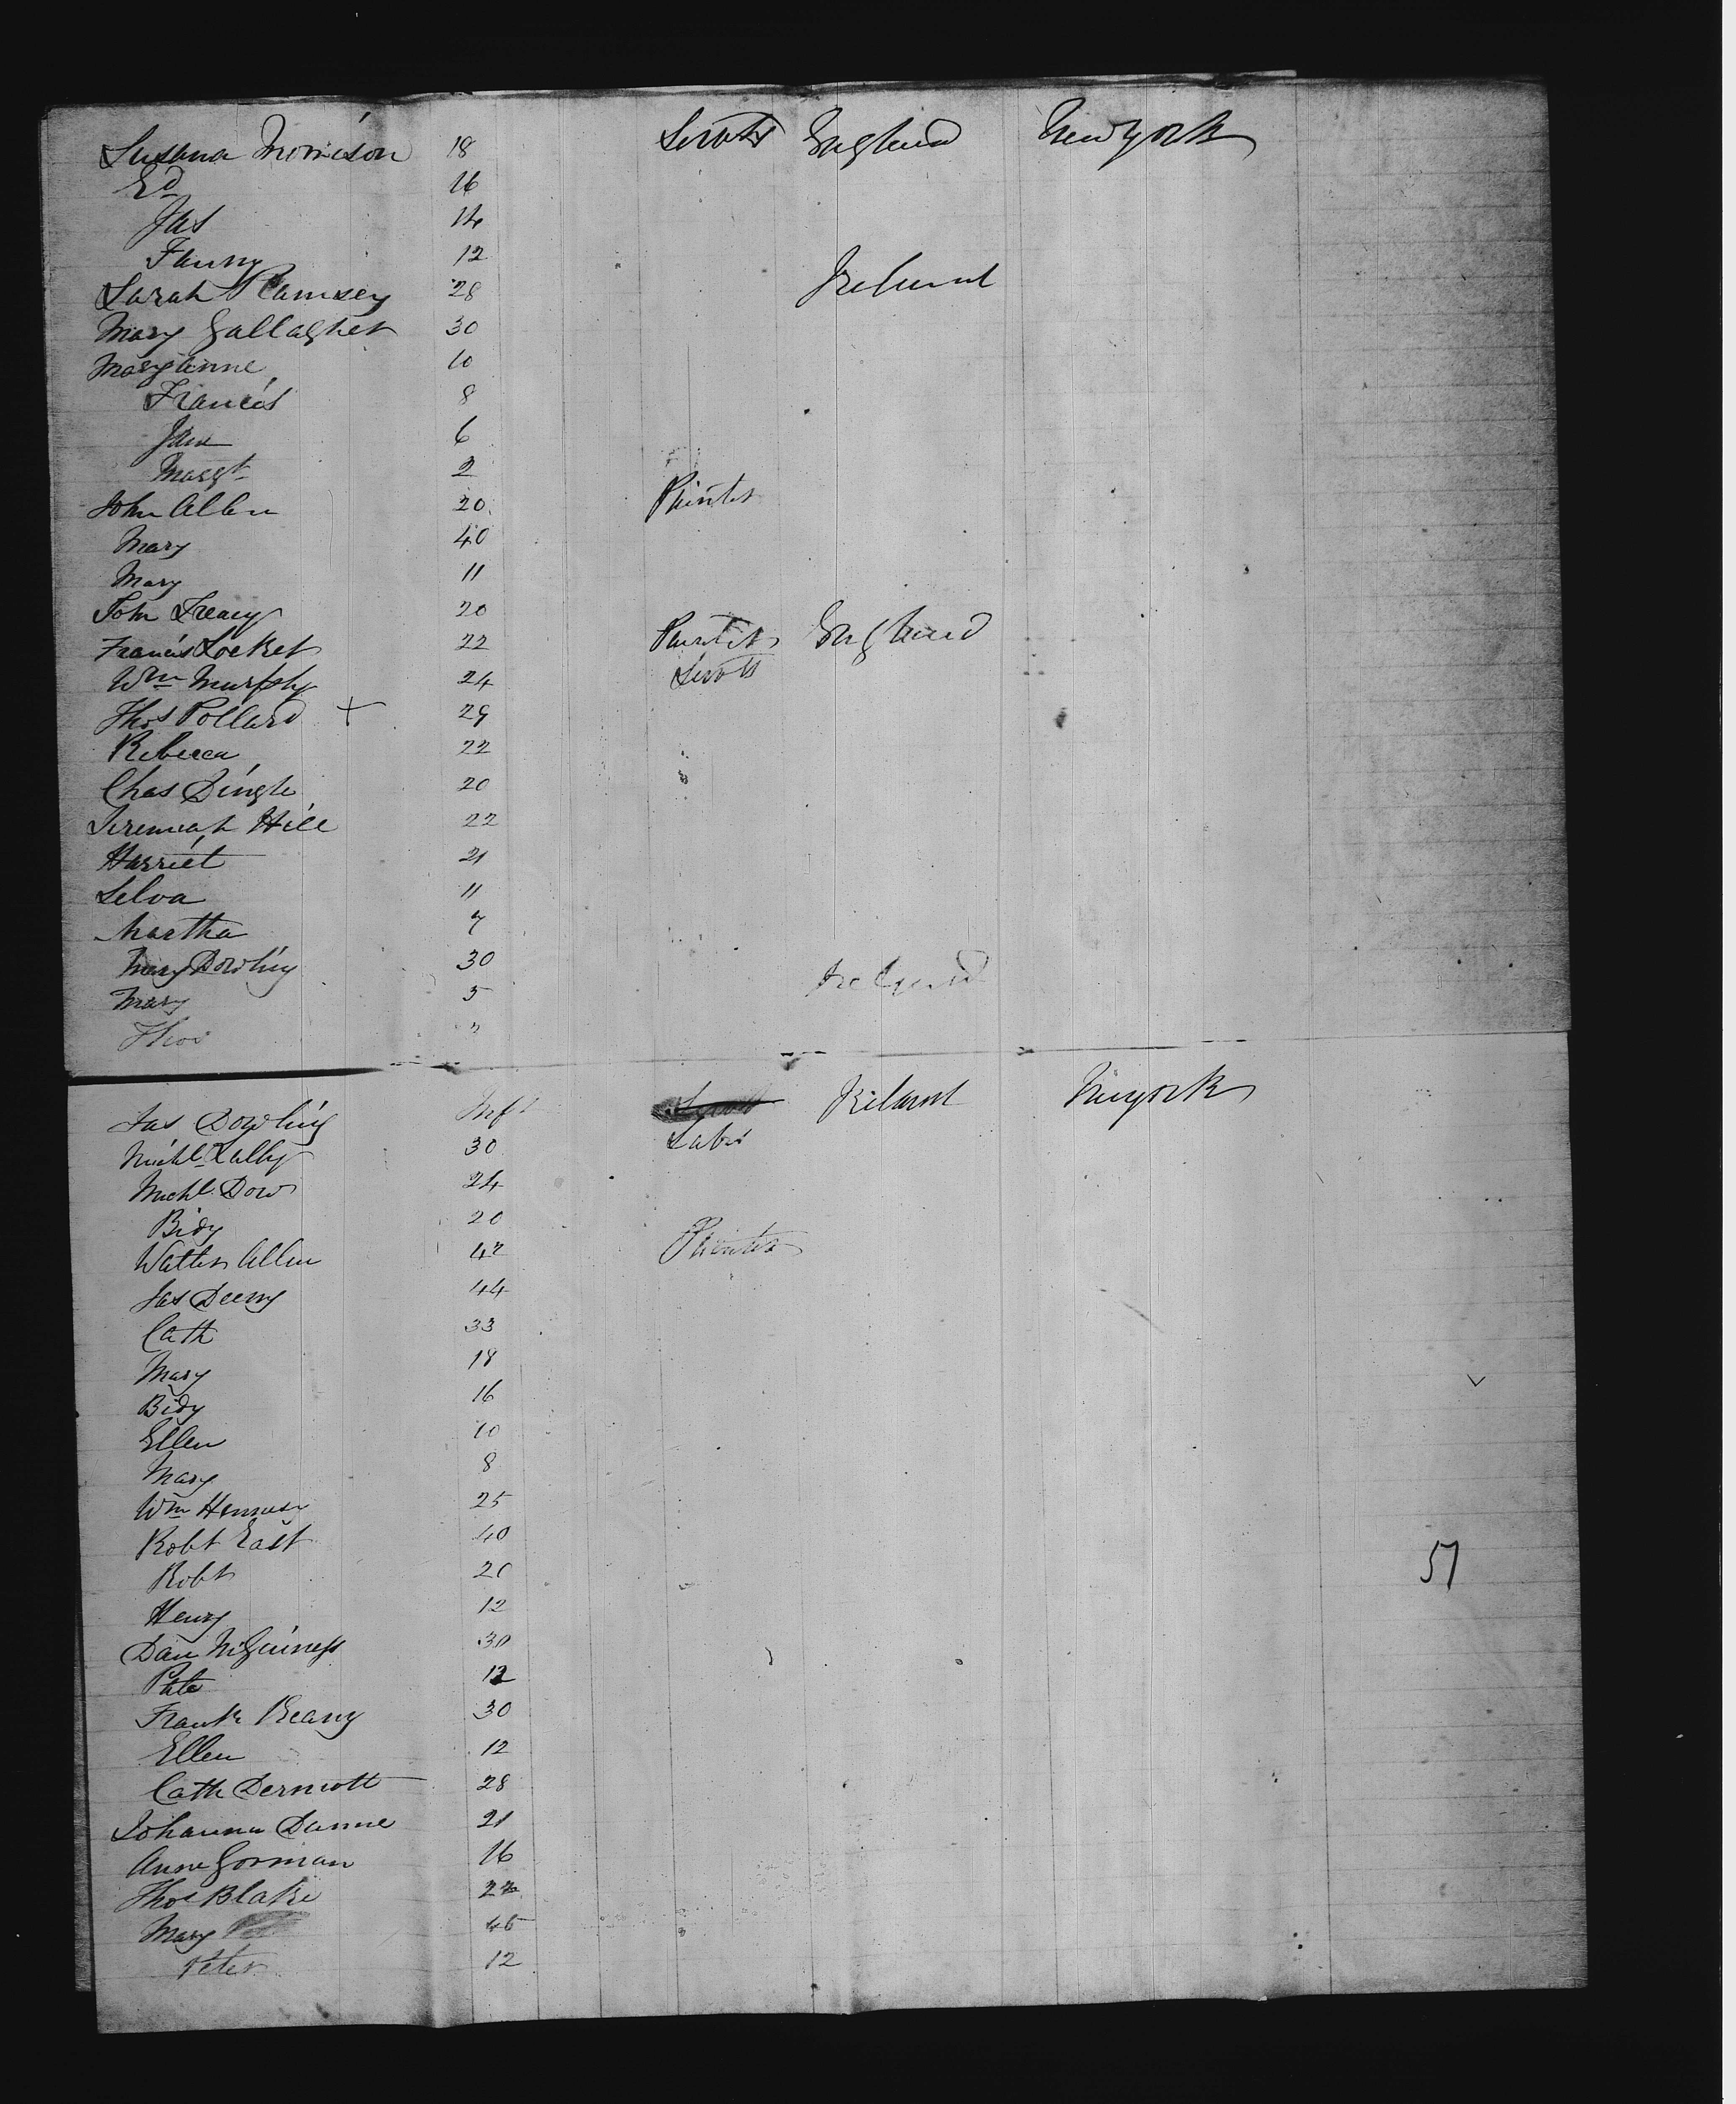 Susana Morrison 18 Servts England New york
Ed 16
Jas 14
Fanny 12
Sarah Ramsey 28 Ireland
Mary Gallagher 30
Maryanne 10
Francis 8
Jane 6
Margt 2
John Allen 20 Painter
Mary 40
Mary 11
John Treacy 20
Francis Locket 22 Painter England
Wm Murphy 24 Servts
Thos Pollard + 29
Rebecca 22
Chas Dingle 20
Jeremiah Hill 22
Harriet 21
Selva 11
Martha 7
Mary Dowling 30 Ireland
Mary 5
Thos
Jas Dowling Inft Ireland Newyork
Michl Lally 30 Labr
Michl Dow 24
Bidy 20
Walter Allen 42 Painter
Jas Deeny 44
Cath 33
Mary 18
Bidy 16
Ellen 10
Mary 8
Wm Hennesy 25
Robt East 40
Robt 20 51
Henry 12
Dan McGuiness 30
Pate 12
Frank Reany 30
Ellen 12
Cath Dermott 28
Johanna Dunne 21
Anne Gorman 16
Thos Blake 22
Mary 45
Peter 12